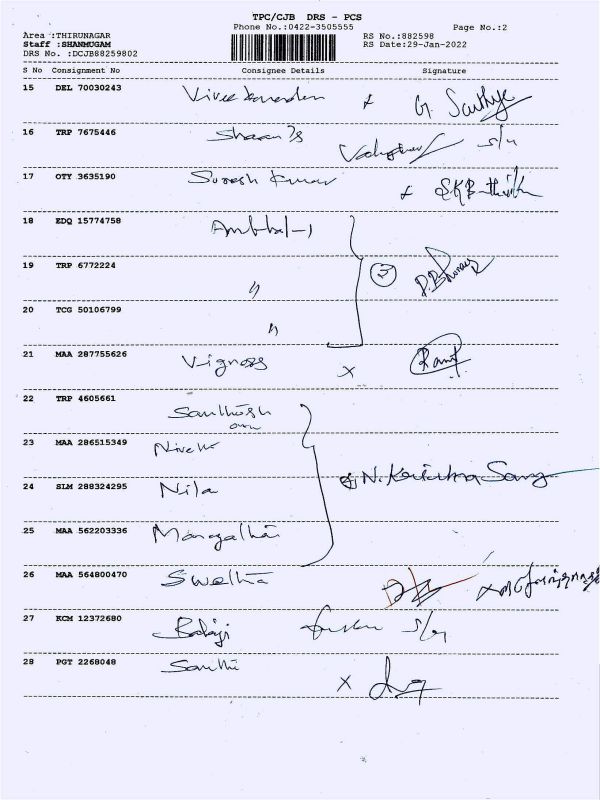 TPC/CJB DRS - PCS
Phone No.:0422-3505555 Page No.:2
Area :THIRUNAGAR RS No.:882598
Staff :SHANMUGAM RS Date:29-Jan-2022
DRS No. :DCJB88259802
S No Consignment No Consignee Details Signature
15 DEL 70030243
16 TRP 7675446 s/u
17 OTY 3635190 Suresh Kumar
18 EDQ 15774758 Ambhal-1
19 TRP 6772224 〃 3
20 TCG 50106799 〃
21 MAA 287755626 Vigness x
22 TRP 4605661 Santhosh
23 MAA 286515349
24 SLM 288324295 Nila
25 MAA 562203336
26 MAA 564800470 Swetha
27 KCM 12372680 Balaji
28 PGT 2268048 Santhi x